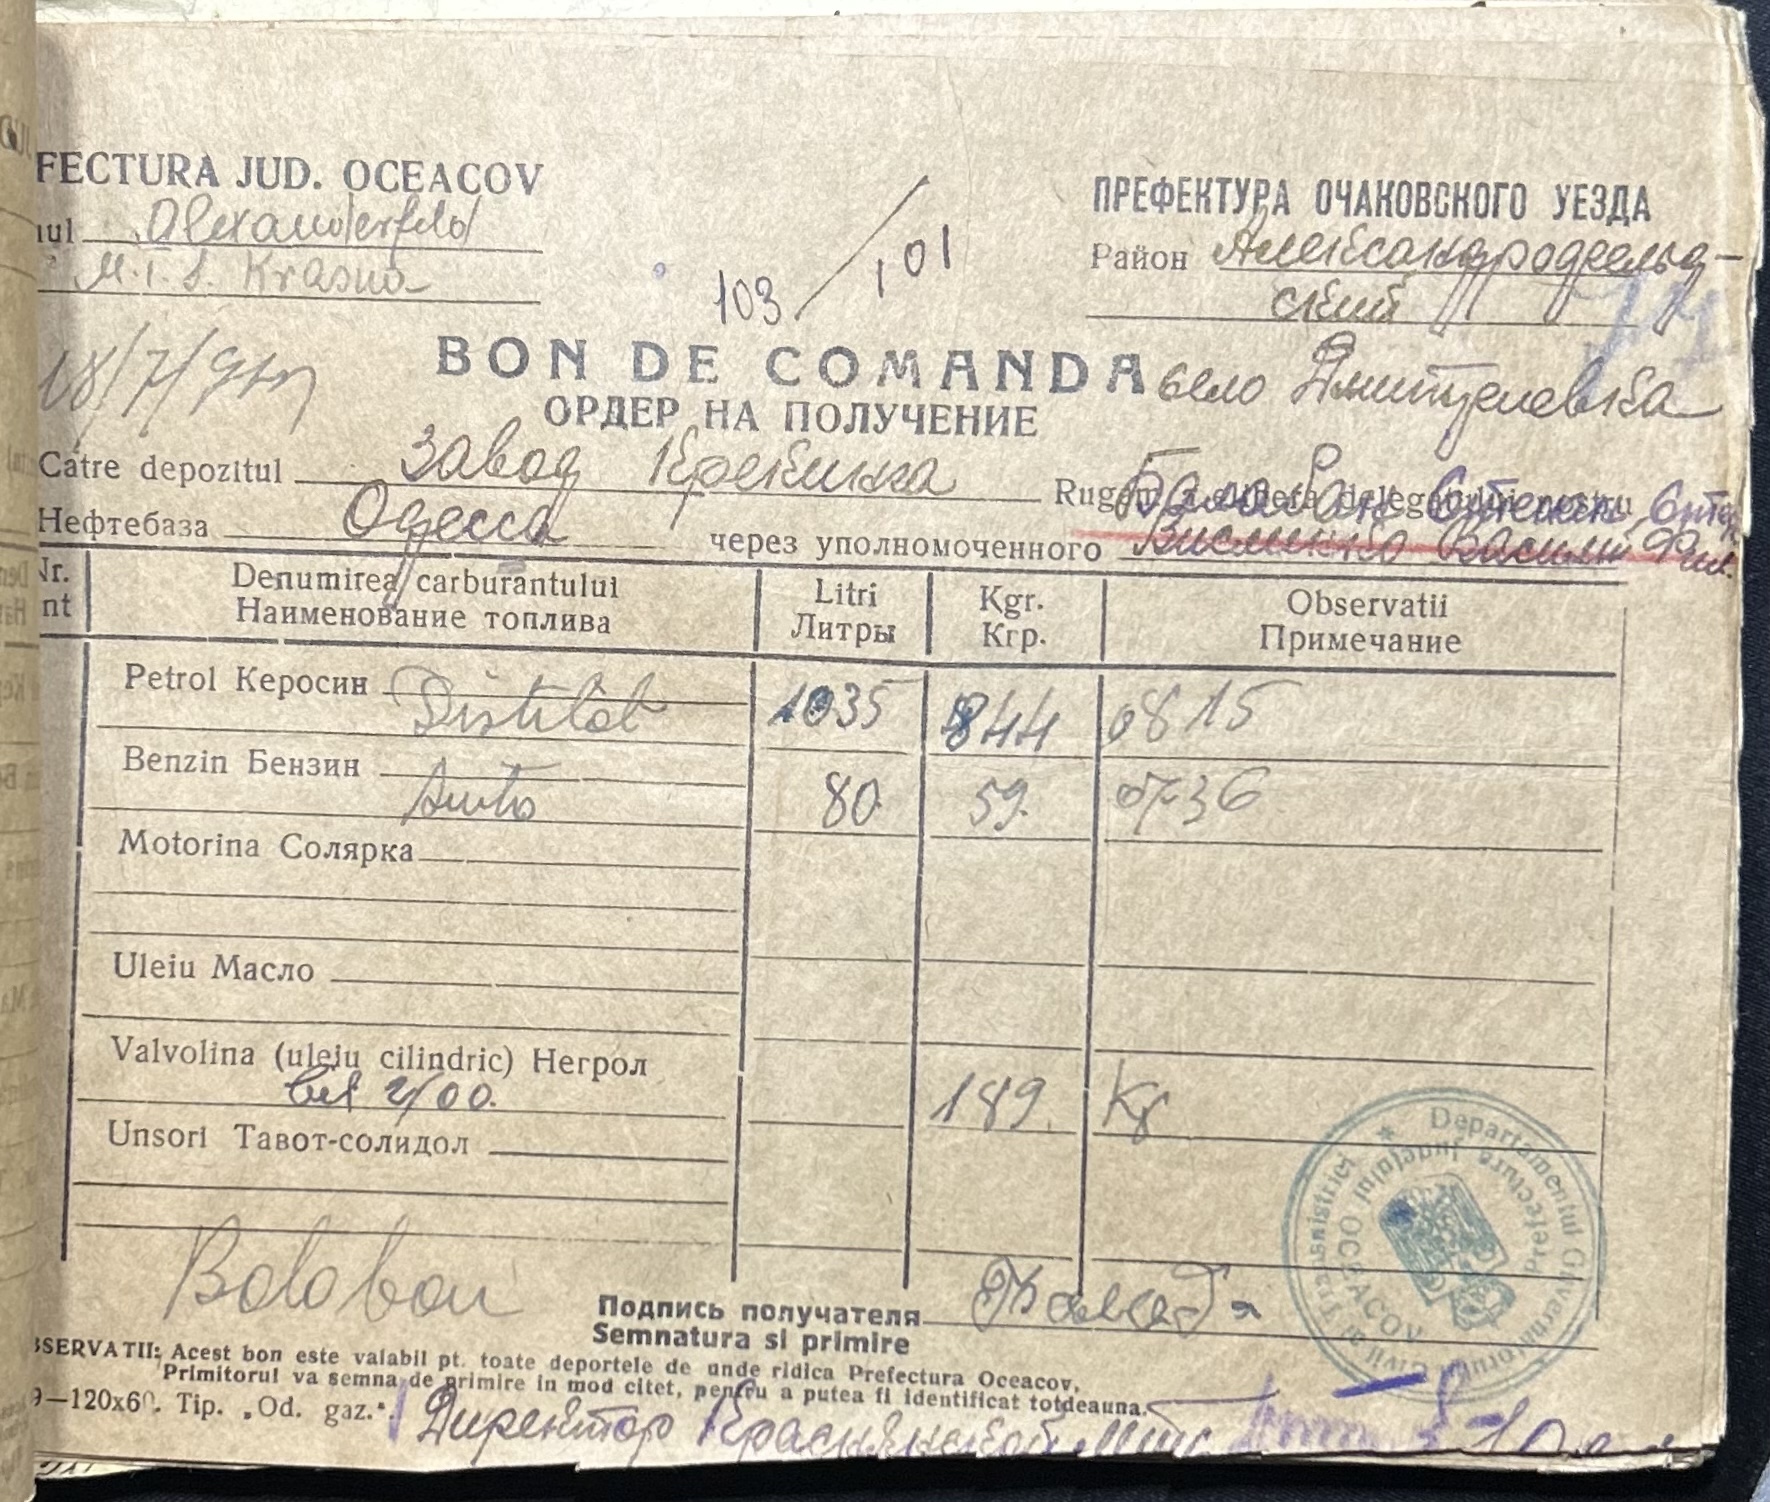 FECTURA JUD. OCEACOV
ПРЕФЕКТУРА ОЧАКОВСКОГО УЕЗДА
Alexanderfeld
M.T.S. Krasna
103/101
Район Александродфельд-
ский
18/7/943
BON DE COMANDA
село Дмитриевка
ОРДЕР НА ПОЛУЧЕНИЕ
Catre depozitul завод Крекинга
Rugem a elibera delegatului nostru
Балабан Степан
Нефтебаза Одесса
через уполномоченного Василий
Nr. Denumirea carburantului Litri Kgr. Observatii
nt Наименование топлива Литры Кгр. Примечание
Petrol Керосин
Distilat 1035 844 0815
Benzin Бензин
Auto 80 59 0736
Motorina Солярка
Uleiu Масло
Valvolina (uleiu cilindric) Негрол
189 Kg
Unsori Тавот-солидол
Bolobon
Подпись получателя
Semnatura si primire
SERVATII: Acest bon este valabil pt. toate deportele de unde ridica Prefectura Oceacov,
Primitorul va semna de primire in mod citet, pentru a putea fi identificat totdeauna.
9—120x60. Tip. „Od. gaz.“.
Директор Краснянской мтс
Departamentul Guvernatorului Civil al Transnistriei
Prefectura Judetului OCEACOV